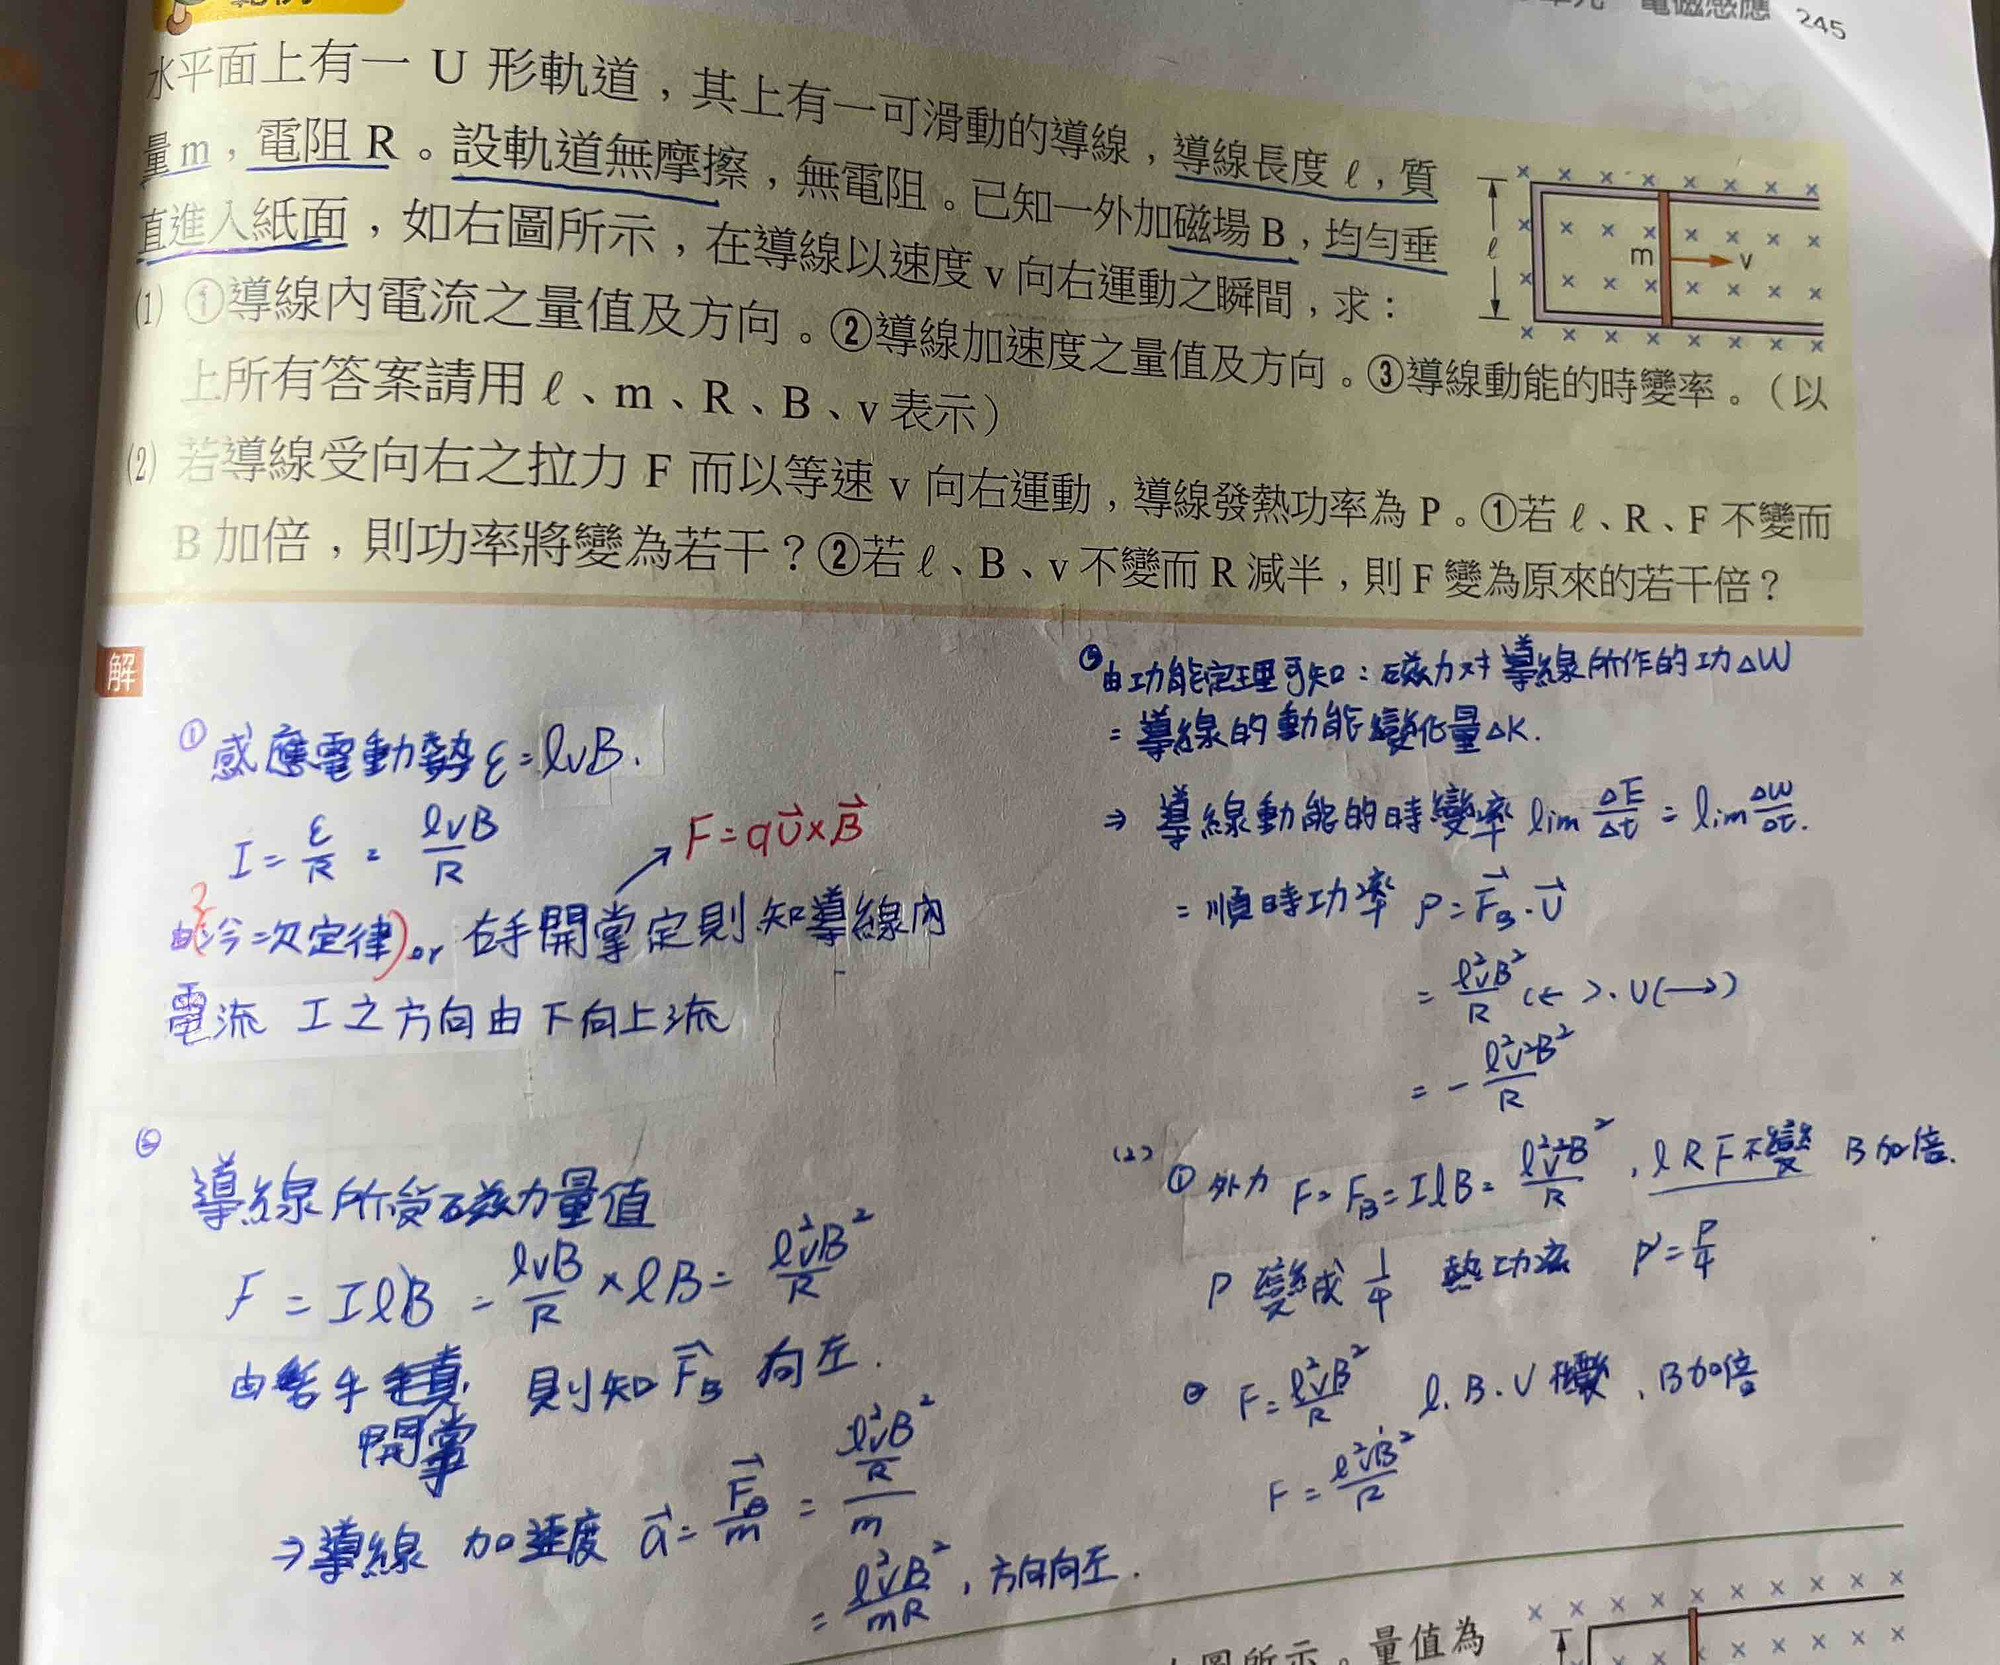 電磁感應 245
水平面上有一 U 形軌道，其上有一可滑動的導線，導線長度 ℓ，質
量 m，電阻 R。設軌道無摩擦，無電阻。已知一外加磁場 B，均勻垂
直進入紙面，如右圖所示，在導線以速度 v 向右運動之瞬間，求：
(1) ①導線內電流之量值及方向。②導線加速度之量值及方向。③導線動能的時變率。（以
上所有答案請用 ℓ、m、R、B、v 表示）
(2) 若導線受向右之拉力 F 而以等速 v 向右運動，導線發熱功率為 P。①若 ℓ、R、F 不變而
B 加倍，則功率將變為若干？②若 ℓ、B、v 不變而 R 減半，則 F 變為原來的若干倍？
ℓ
m
v
解
① 感應電動勢 ε = lvB.
I = ε/R = lvB/R
F = qv⃗ × B⃗
冷次定律) or 右手開掌定則知導線內
電流 I 之方向由下向上流
②
導線所受磁力量值
F = IlB = lvB/R × lB = l²vB²/R
由右手
開掌
則知 F⃗B 向左.
⇒ 導線加速度 a⃗ = F⃗B/m = (l²vB²/R)/m
= l²vB²/mR , 方向向左.
③ 由功能定理可知：磁力對導線所作的功 ΔW
= 導線的動能變化量 ΔK.
⇒ 導線動能的時變率 lim ΔE/Δt = lim ΔW/Δt.
= 順時功率 P = F⃗B · v⃗
= l²vB²/R (←) · v (→)
= - l²v²B²/R
(2) ① 外力 F = FB = IlB = l²v²B²/R , l R F 不變 B 加倍.
P 變成 1/4 熱功率 P' = P/4
② F = l²vB²/R l. B. v 不變 , B 加倍
F = l²vB²/R
圖所示。量值為